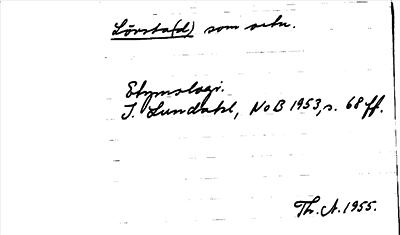 Lövsta(d) som ortn.
Etymologi.
I. Lundahl, NoB 1953, s. 68 ff.
Th. A. 1955.